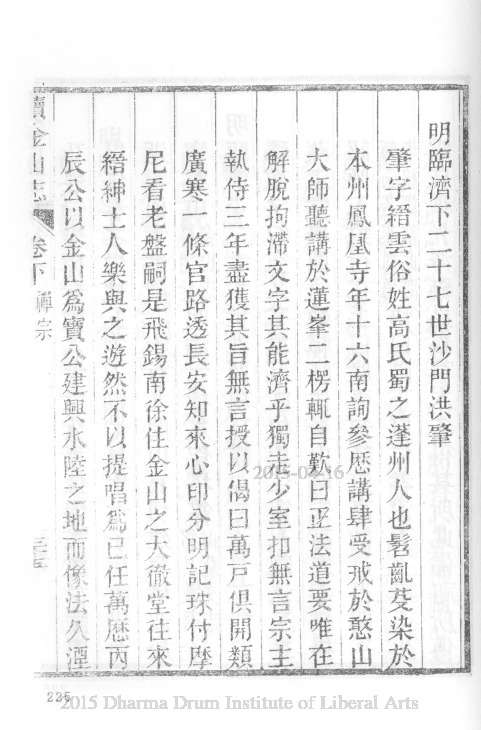 明臨濟下二十七世沙門洪肇
肇字縉雲俗姓高氏蜀之蓬州人也髫齓芟染於
本州鳳凰寺年十六南詢參歷講肆受戒於憨山
大師聽講於蓮峯二楞輒自歎曰正法道要唯在
解脫拘滯文字其能濟乎獨走少室扣無言宗主
執侍三年盡獲其旨無言授以偈曰萬戸俱開類
廣寒一條官路透長安知來心印分明記珠付摩
尼看老盤嗣是飛錫南徐住金山之大徹堂往來
縉紳士人樂與之遊然不以提唱爲已任萬歷丙
辰公以金山爲寶公建興水陸之地而像法久湮
續金山志 卷下 禪宗 三
2015-04-16
225
2015 Dharma Drum Institute of Liberal Arts